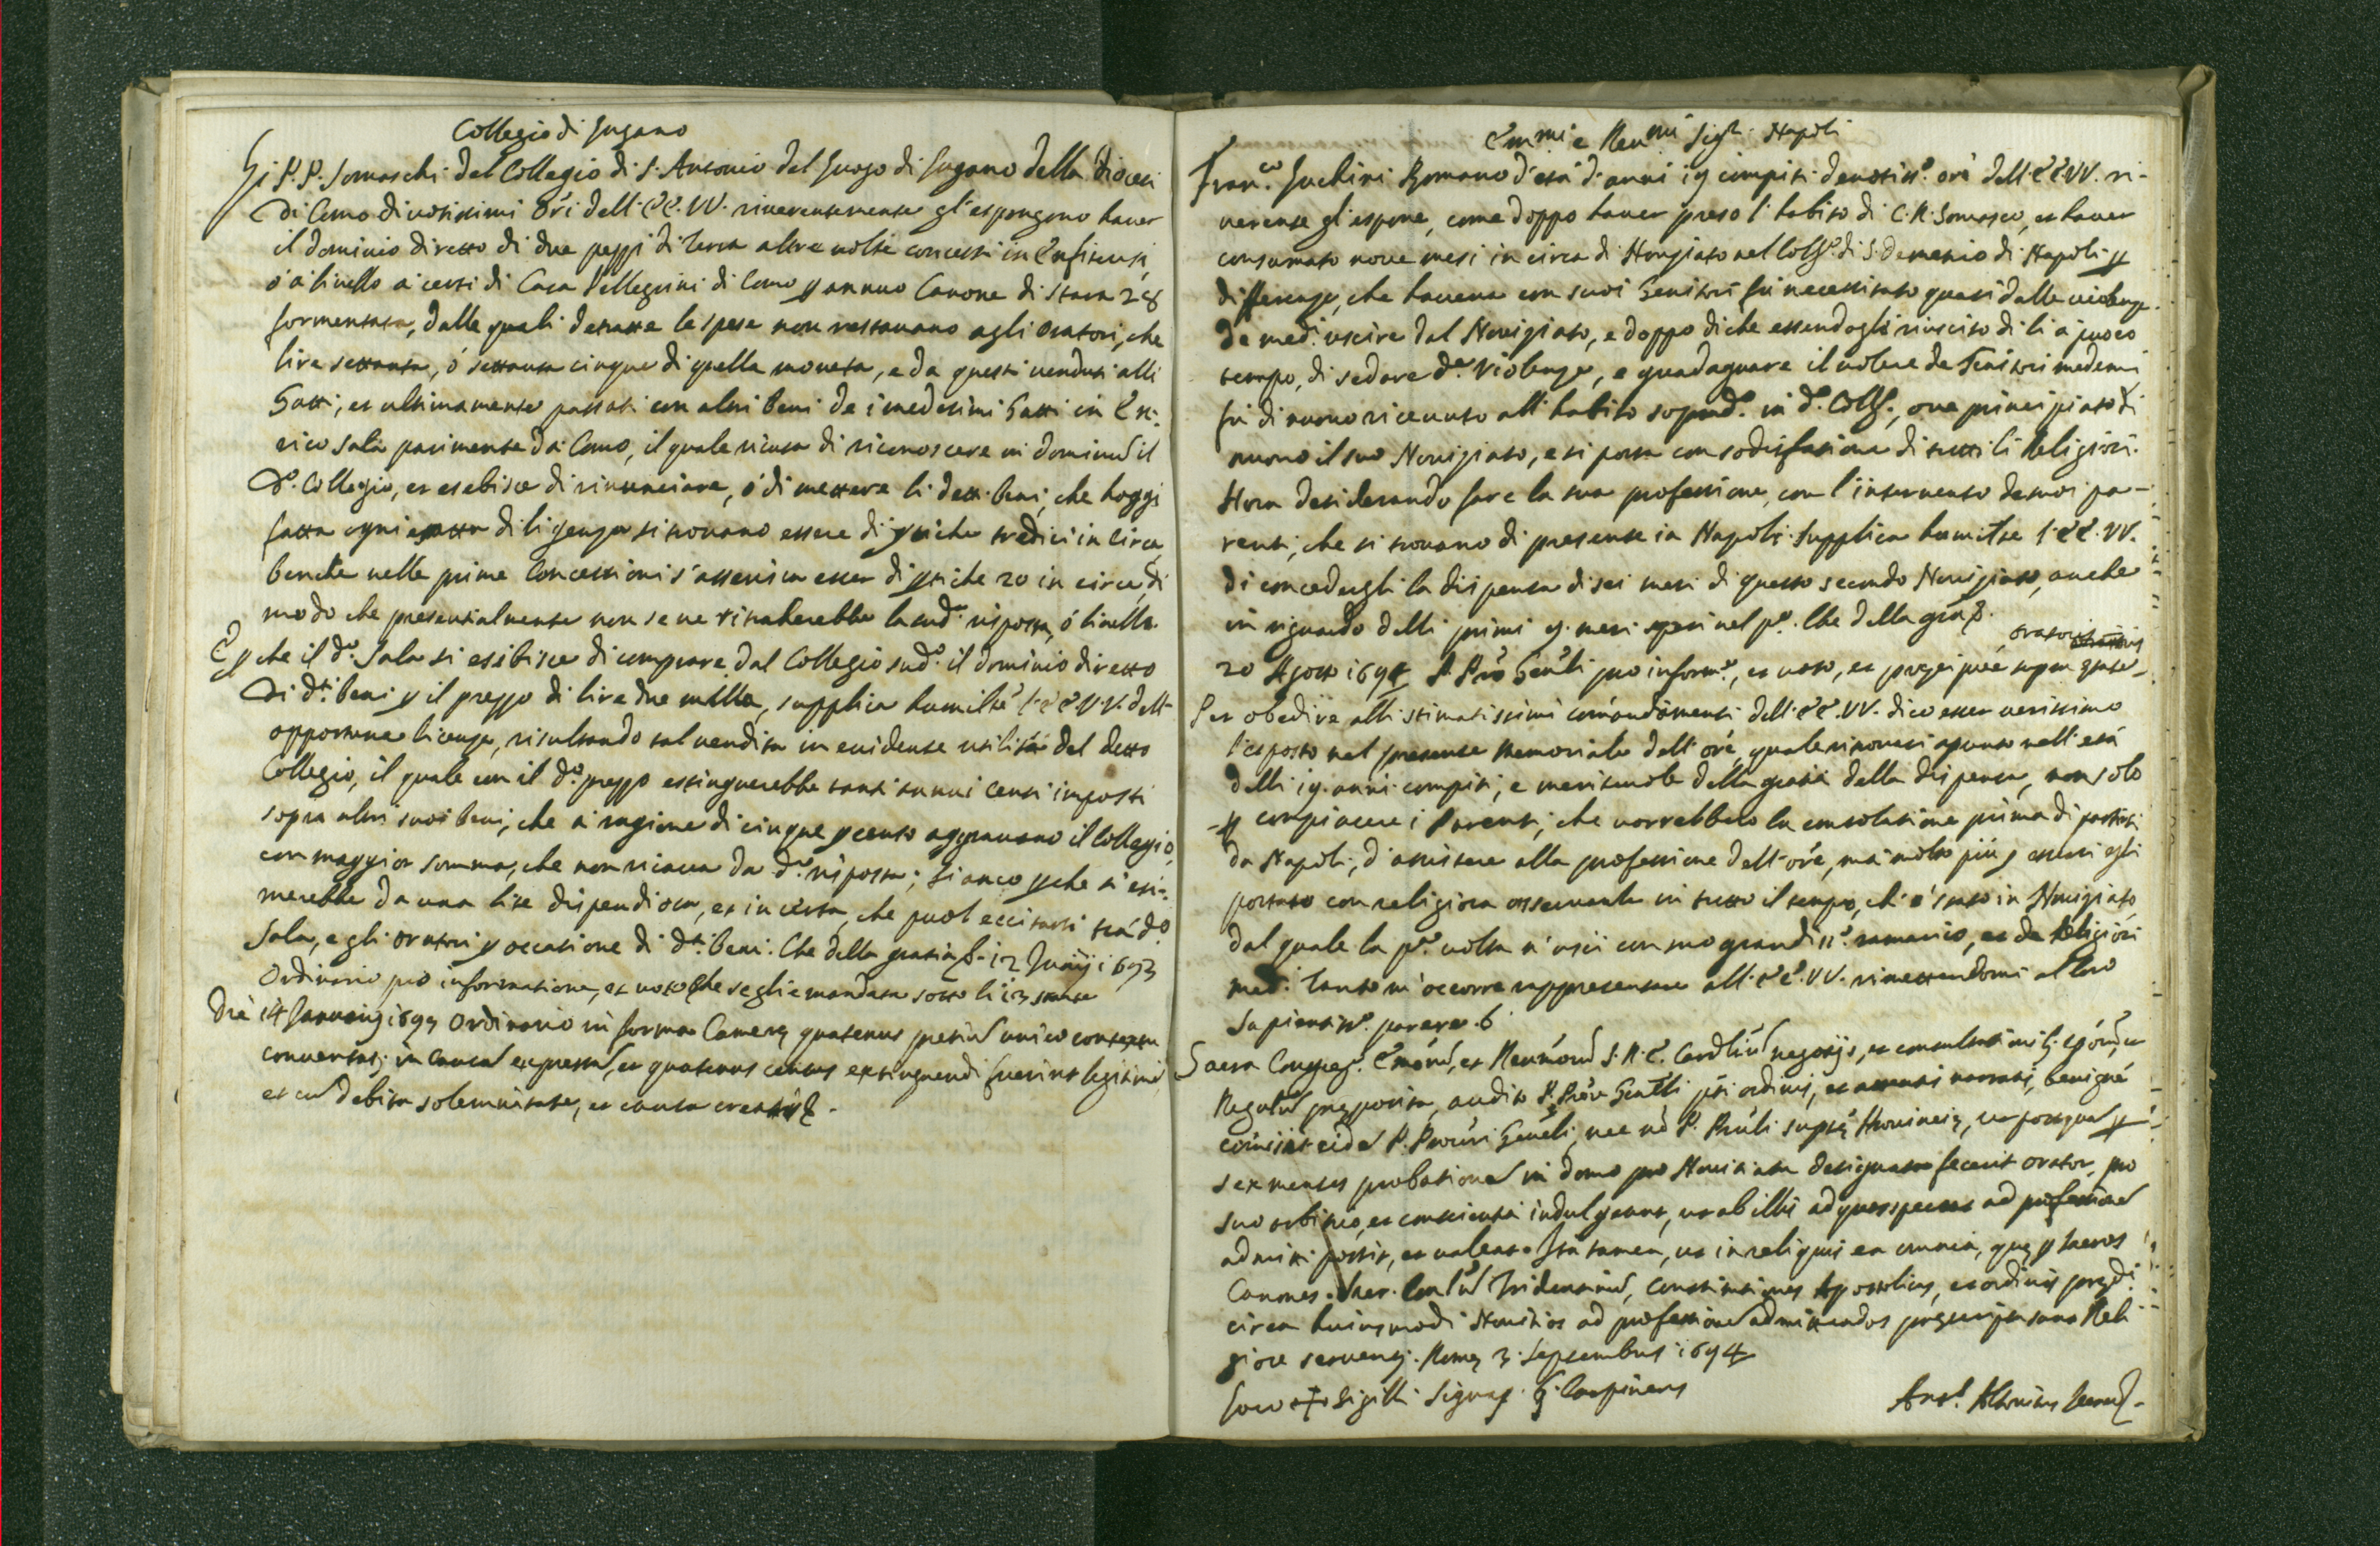 Collegio di Lugano
Li P.P. Somaschi del Collegio di S. Antonio del Luogo di Lugano della Diocesi
di Como divotissimi Ori dell' EE. VV. riverentemente gl'espongono haver
il dominio diretto di due pezzi di terra altre volte concessi in Enfiteusi,
ó a livello a certi di Casa Pellegrini di Como p annuo Canone di stara 28
formentata, dalle quali detratte le spese non restavano agli oratori, che
lire settanta, ó settanta cinque di quella moneta, e da questi venduti alli
Gatti, et ultimamente passati con altri beni de i medesimi Gatti in En-
rico Sala parimente da Como, il quale ricusa di riconoscere in dominu il
do. Collegio, et esebisce di rinunciare, ó di mettere li detti beni, che hoggi
fatta ogni esatta diligenza si trovano essere di ptiche tredici in circa
benche nelle prime Concessioni s'asserisca esser di ptiche 20 in circa, di
modo che presentialmente non se ne ritraherebbe la sudª risposta, ó livello.
E p che il do. Sala si esibisce di comprare dal Collegio sudo. il dominio diretto
di dti. beni p il prezzo di lire due milla, supplica humilte l'EE VV. dell'
opportuna licenza, risultando tal vendita in evidente utilitá del detto
Collegio, il quale con il do. prezzo estinguerebbe tanti annui Censi imposti
sopra altri suoi beni, che a ragione di cinque p cento aggravano il Collegio,
con maggior somma, che non ricava da da. risposta; si anco p che si esi-
merebbe da una lite dispendiosa, et incerta, che puol eccitarsi trá do.
Sala, e gli oratori p occasione di dti. beni. Che della gratia &. 12 Junij 1693
Ordinario pro informatione, et voto che se gli e mandata sotto li 13 stante
Die 14 Januarij 1694 Ordinario in forma Camerę quatenus pretiu unico contextu
convertat. in causa expressa, et quatenus census extinguendi fuerint legitime,
et cu debita solemnitate, et causa creati &.
Emmi e Revmi Sigri. Napoli
Fran.co Luchini Romano d'etá d'anni 19 compiti devotiss.o ore dell' EE VV. ri-
verente gl'espone, come doppo haver preso l'habito di C.R. Somasco, et haver
consumato nove mesi in circa di Noviziato nel Collo. di S. Demetrio di Napoli p
differenze, che haveva con suoi Genitori fu necessitato quasi dalle violenze
de med.i uscire dal Novitiato, e doppo di che essendogli riuscito di li a puoco
tempo, di sedare de. violenze, e guadagnare il volere de Genitori medemi
fu di nuovo ricevuto all'habito soprado. in do. Collo., ove principiato di
nuovo il suo Noviziato, e si porta con sodisfatione di tutti li Religiosi.
Hora desiderando fare la sua professione, con l'intervento de suoi pa-
renti, che si trovano di presente in Napoli. Supplica humilte l'EE. VV.
di concedergli la dispensa di sei mesi di questo secondo Noviziato, anche
in riguardo delli primi 9. mesi spesi nel po. Che della gra &.
20 Agosto 1694 P. Pro. Genli pro inform.e, et voto, et proprijs pre super
oratoris
Per obedire alli stimatissimi comandamenti dell' EE. VV. dico esser verissimo
l'esposto nel presente memoriale dell' ore, quale ritrovasi apunto nell' etá
delli 19. anni compiti, e meritevole della gratia della dispensa, non solo
p compiacere i Parenti, che vorrebbero la consolatione prima di partirsi
da Napoli, d'assistere alla professione dell' ore, má molto piú p essersi egli
portato con religiosa osservanza in tutto il tempo, ch'é stato in Noviziato,
dal quale la pa. volta n'uscì con suo grandiss.o ramarico, et de Religiosi
med.i Tanto m'occorre rappresentare all' EE. VV. rimettendomi al loro
sapientiss.o parere. &
Sacra Congreg.o Emoru, et Revmoru S.R.E. Cardliu negotijs, et consultationib. Eporu, et
Regulariu pręposita, audito P. Prore Genli sui ordinis, et attentis narratis, benigne
comisit eidem P. Procuri Genli, nec non P. Pruli supte Provincię, ut postquam p
sex menses probationem in domo pro Novitiatu designata fecerit orator, pro
suo arbitrio, et conscientia indulgeant, ut ab illis ad quos spectat ad professione
admitti possit, et valeat. Ita tamen, ut in reliquis ea omnia, quę p sacros
Canones. Sacr. Conliu Tridentinu, Constitutiones Apostolicas, et ordinis prędi.
circa huiusmodi Novitios ad professione admittendos pręscripta sunt Reli
giose serventur. Romę 3. Septembris 1694
Loco + Sigilli. Signat. G. Carpineus
Ant.